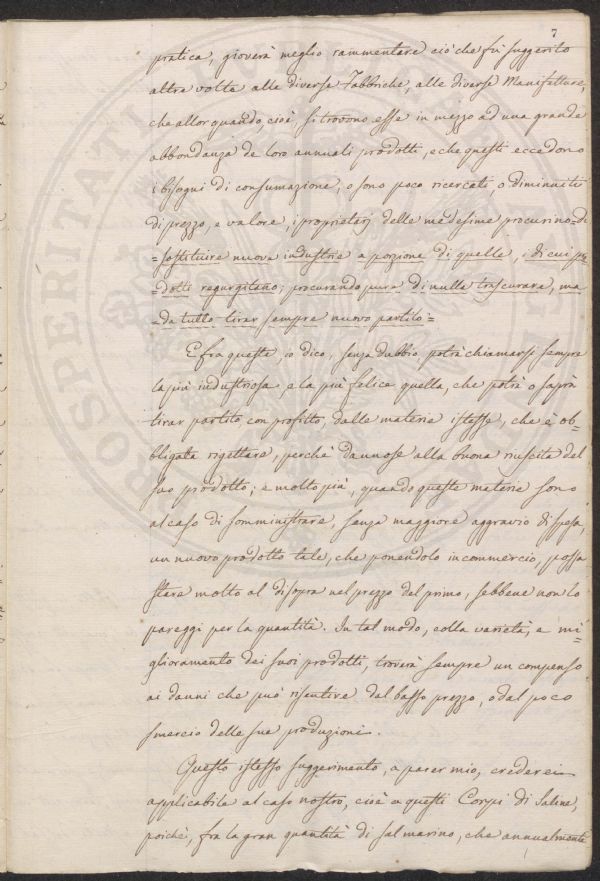 7
pratica, gioverà meglio rammentare ciò che fù suggerito
altra volta alle diverse Fabbriche, alle diverse Manifatture,
che allor quando, cioè, si trovono esse in mezzo ad una grande
abbondanza de loro annuali prodotti, e che questi eccedono
i bisogni di consumazione, o sono poco ricercati o diminuiti
di prezzo, e valore, i proprietarj delle medesime procurino = di
= sostituire nuova industria a porzione di quelle, i di cui pro=
= dotti regurgitano; procurando pure di nulla trascurare, ma
= da tutto tirar sempre nuovo partito =
E fra queste, io dico, senza dubbio potrà chiamarsi sempre
la più industriosa, e la più felice quella, che potrà o saprà
tirar partito con profitto, dalle materie istesse, che è ob=
bligata rigettare, perchè dannose alla buona riuscita del
suo prodotto; e molto più, quando queste materie sono
al caso di somministrare, senza maggiore aggravio di spesa,
un nuovo prodotto tale, che ponendolo in commercio, possa
stare molto al disopra nel prezzo del primo, sebbene non lo
pareggi per la quantità. In tal modo, colla varietà, e mi=
glioramento dei suoi prodotti, troverà sempre un compenso
ai danni che può risentire dal basso prezzo, o dal poco
smercio delle sue produzioni.
Questo istesso suggerimento, a parer mio, crederei
applicabile al caso nostro, cioè a questi Corpi di Saline,
poichè, fra la gran quantità di sal marino, che annualmente
PROSPERITATI